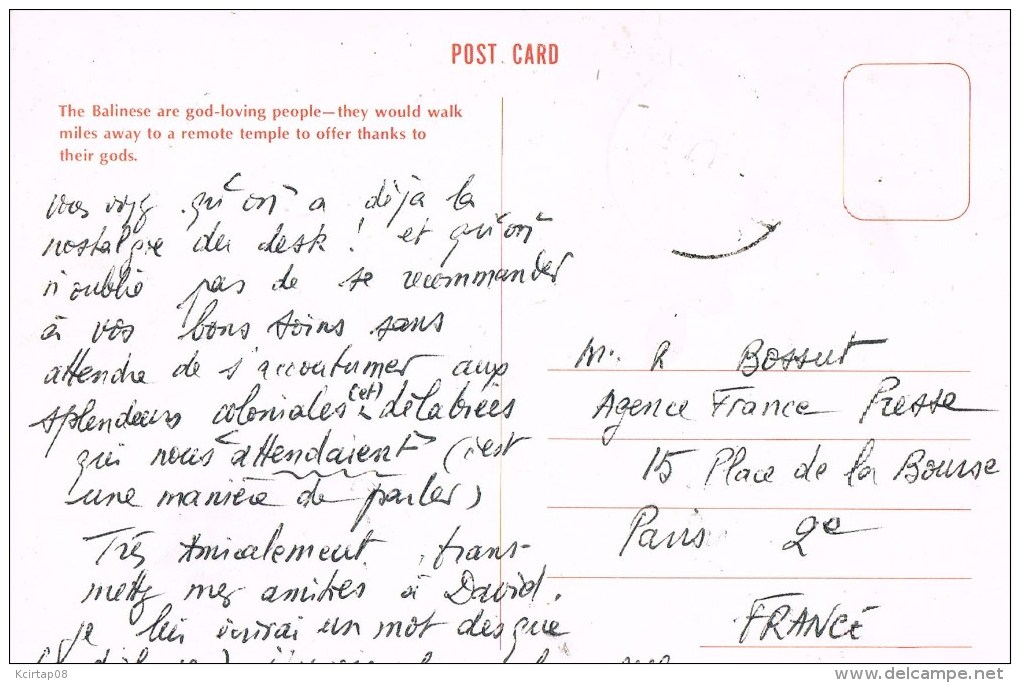 POST CARD
The Balinese are god-loving people—they would walk
miles away to a remote temple to offer thanks to
their gods.
vous voyez qu'on a déja la
nostalgie du desk ! et qu'on
n'oublie pas de se recommander
à vos bons soins sans
attendre de s'accoutumer aux
splendeurs coloniales (et) délabrées
qui nous "attendaient" (c'est
une manière de parler)
Très Amicalement, trans-
mettez mes amitiés à David.
je lui écrirai un mot des que
Mr. R Bossut
Agence France Presse
15 Place de la Bourse
Paris 2e
FRANCE
Kcirtap08
www.delcampe.net